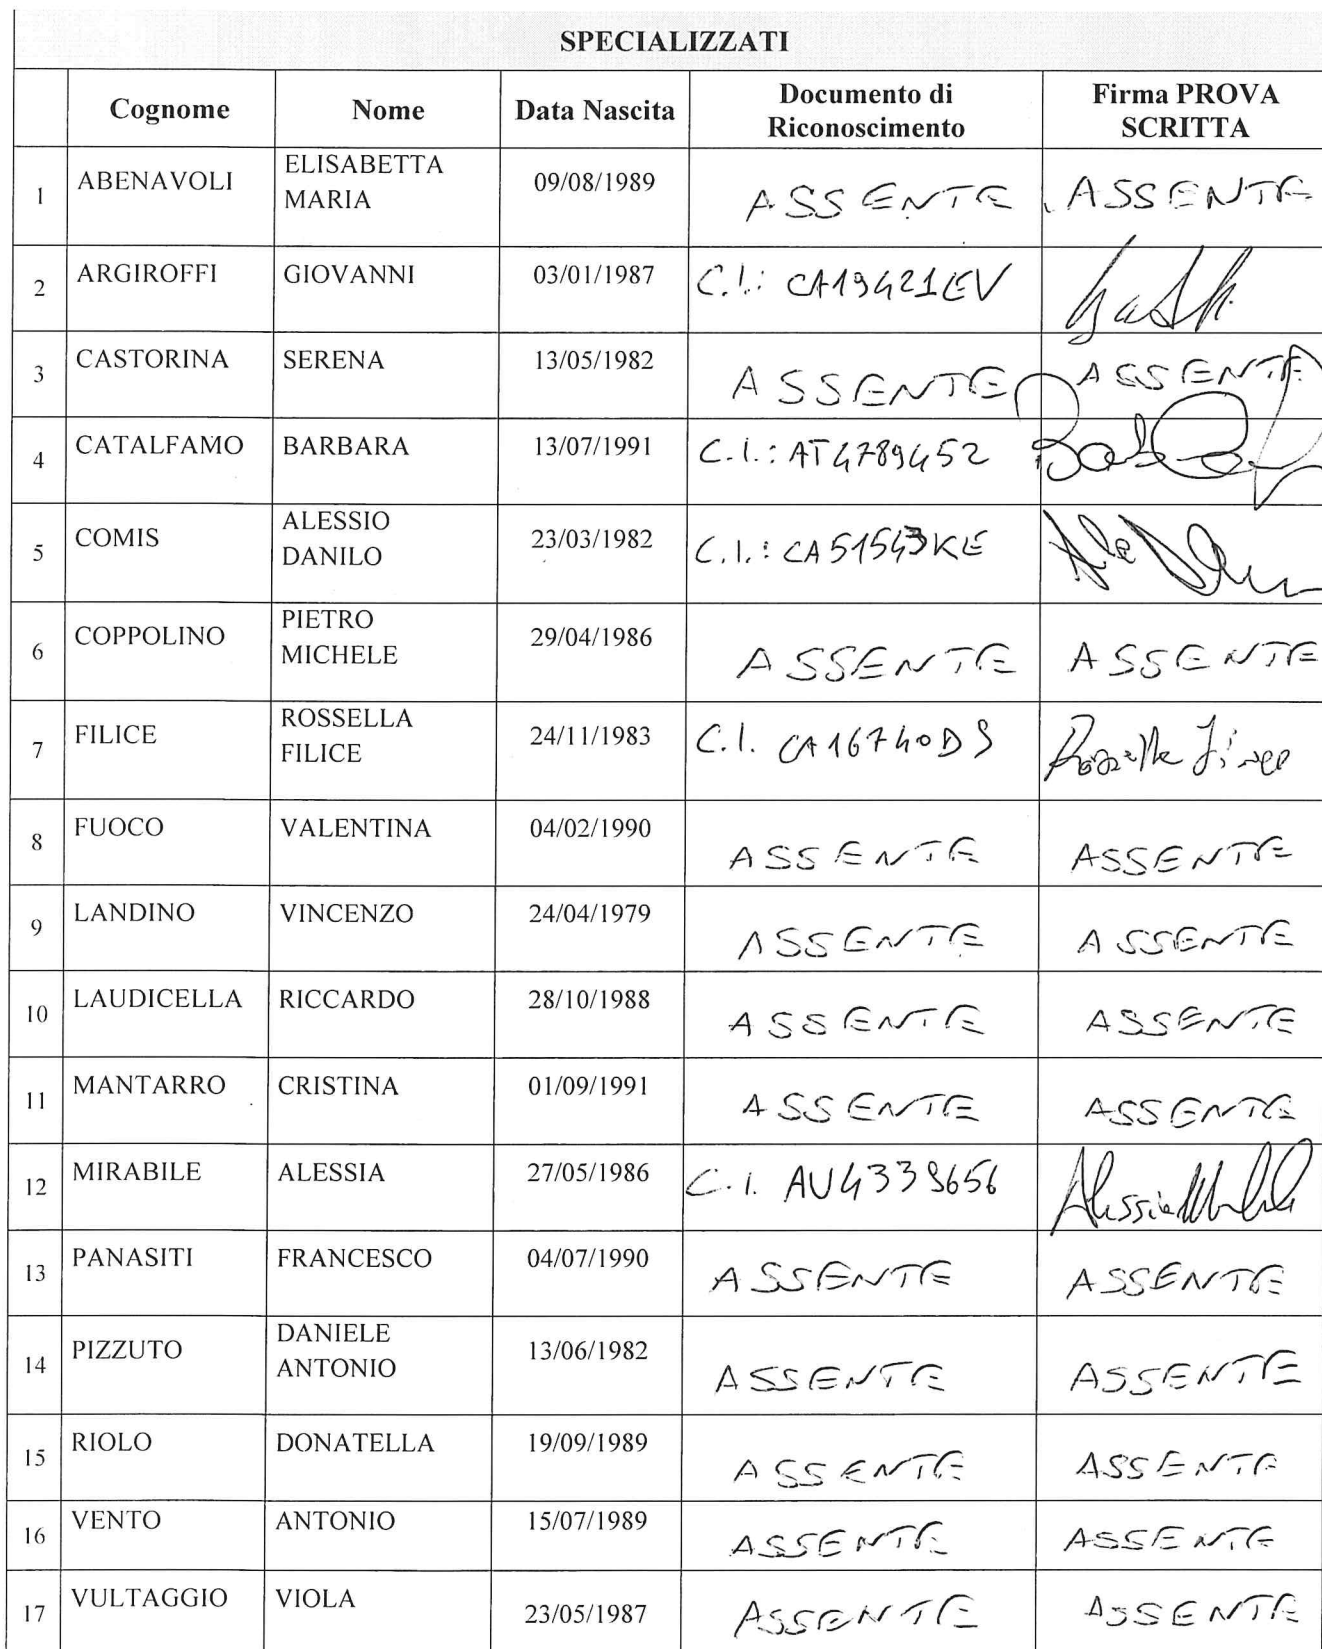 SPECIALIZZATI
Cognome Nome Data Nascita Documento di Riconoscimento Firma PROVA SCRITTA
1 ABENAVOLI ELISABETTA MARIA 09/08/1989 ASSENTE ASSENTE
2 ARGIROFFI GIOVANNI 03/01/1987 C.I.: CA19421EV
3 CASTORINA SERENA 13/05/1982 ASSENTE ASSENTE
4 CATALFAMO BARBARA 13/07/1991 C.I.: AT4789452
5 COMIS ALESSIO DANILO 23/03/1982 C.I.: CA51543KE
6 COPPOLINO PIETRO MICHELE 29/04/1986 ASSENTE ASSENTE
7 FILICE ROSSELLA FILICE 24/11/1983 C.I. CA16740DS
8 FUOCO VALENTINA 04/02/1990 ASSENTE ASSENTE
9 LANDINO VINCENZO 24/04/1979 ASSENTE ASSENTE
10 LAUDICELLA RICCARDO 28/10/1988 ASSENTE ASSENTE
11 MANTARRO CRISTINA 01/09/1991 ASSENTE ASSENTE
12 MIRABILE ALESSIA 27/05/1986 C.I. AU4339656 Alessia
13 PANASITI FRANCESCO 04/07/1990 ASSENTE ASSENTE
14 PIZZUTO DANIELE ANTONIO 13/06/1982 ASSENTE ASSENTE
15 RIOLO DONATELLA 19/09/1989 ASSENTE ASSENTE
16 VENTO ANTONIO 15/07/1989 ASSENTE ASSENTE
17 VULTAGGIO VIOLA 23/05/1987 ASSENTE ASSENTE